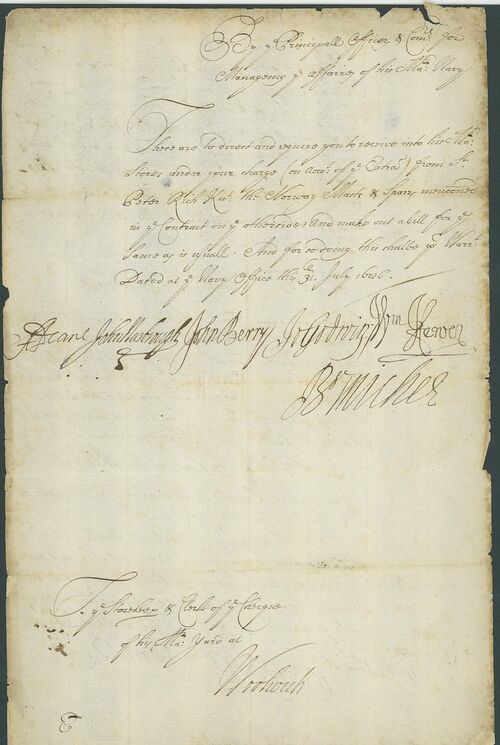 By ye Principall Officers & Comrs for
Managing ye affaires of his Mats Navy
These are to direct and require you to receive into his Mats
Stores under your charge (on accot of ye Extra) from Sr
Peter Rich Knt the Norway Masts & Spars mencioned
in ye Contract on ye otherside, and make out a bill for ye
same as is usuall. And for so doing this shalbe yor Warrt
Dated at ye Navy Office this 31 July 1686.
A Deane John Narbrough John Berry Jo Godwin Wm Hewer
B St Michel
To ye Storekeepr & Clerk of ye Cheque
of his Mats Yard at
Woolwich